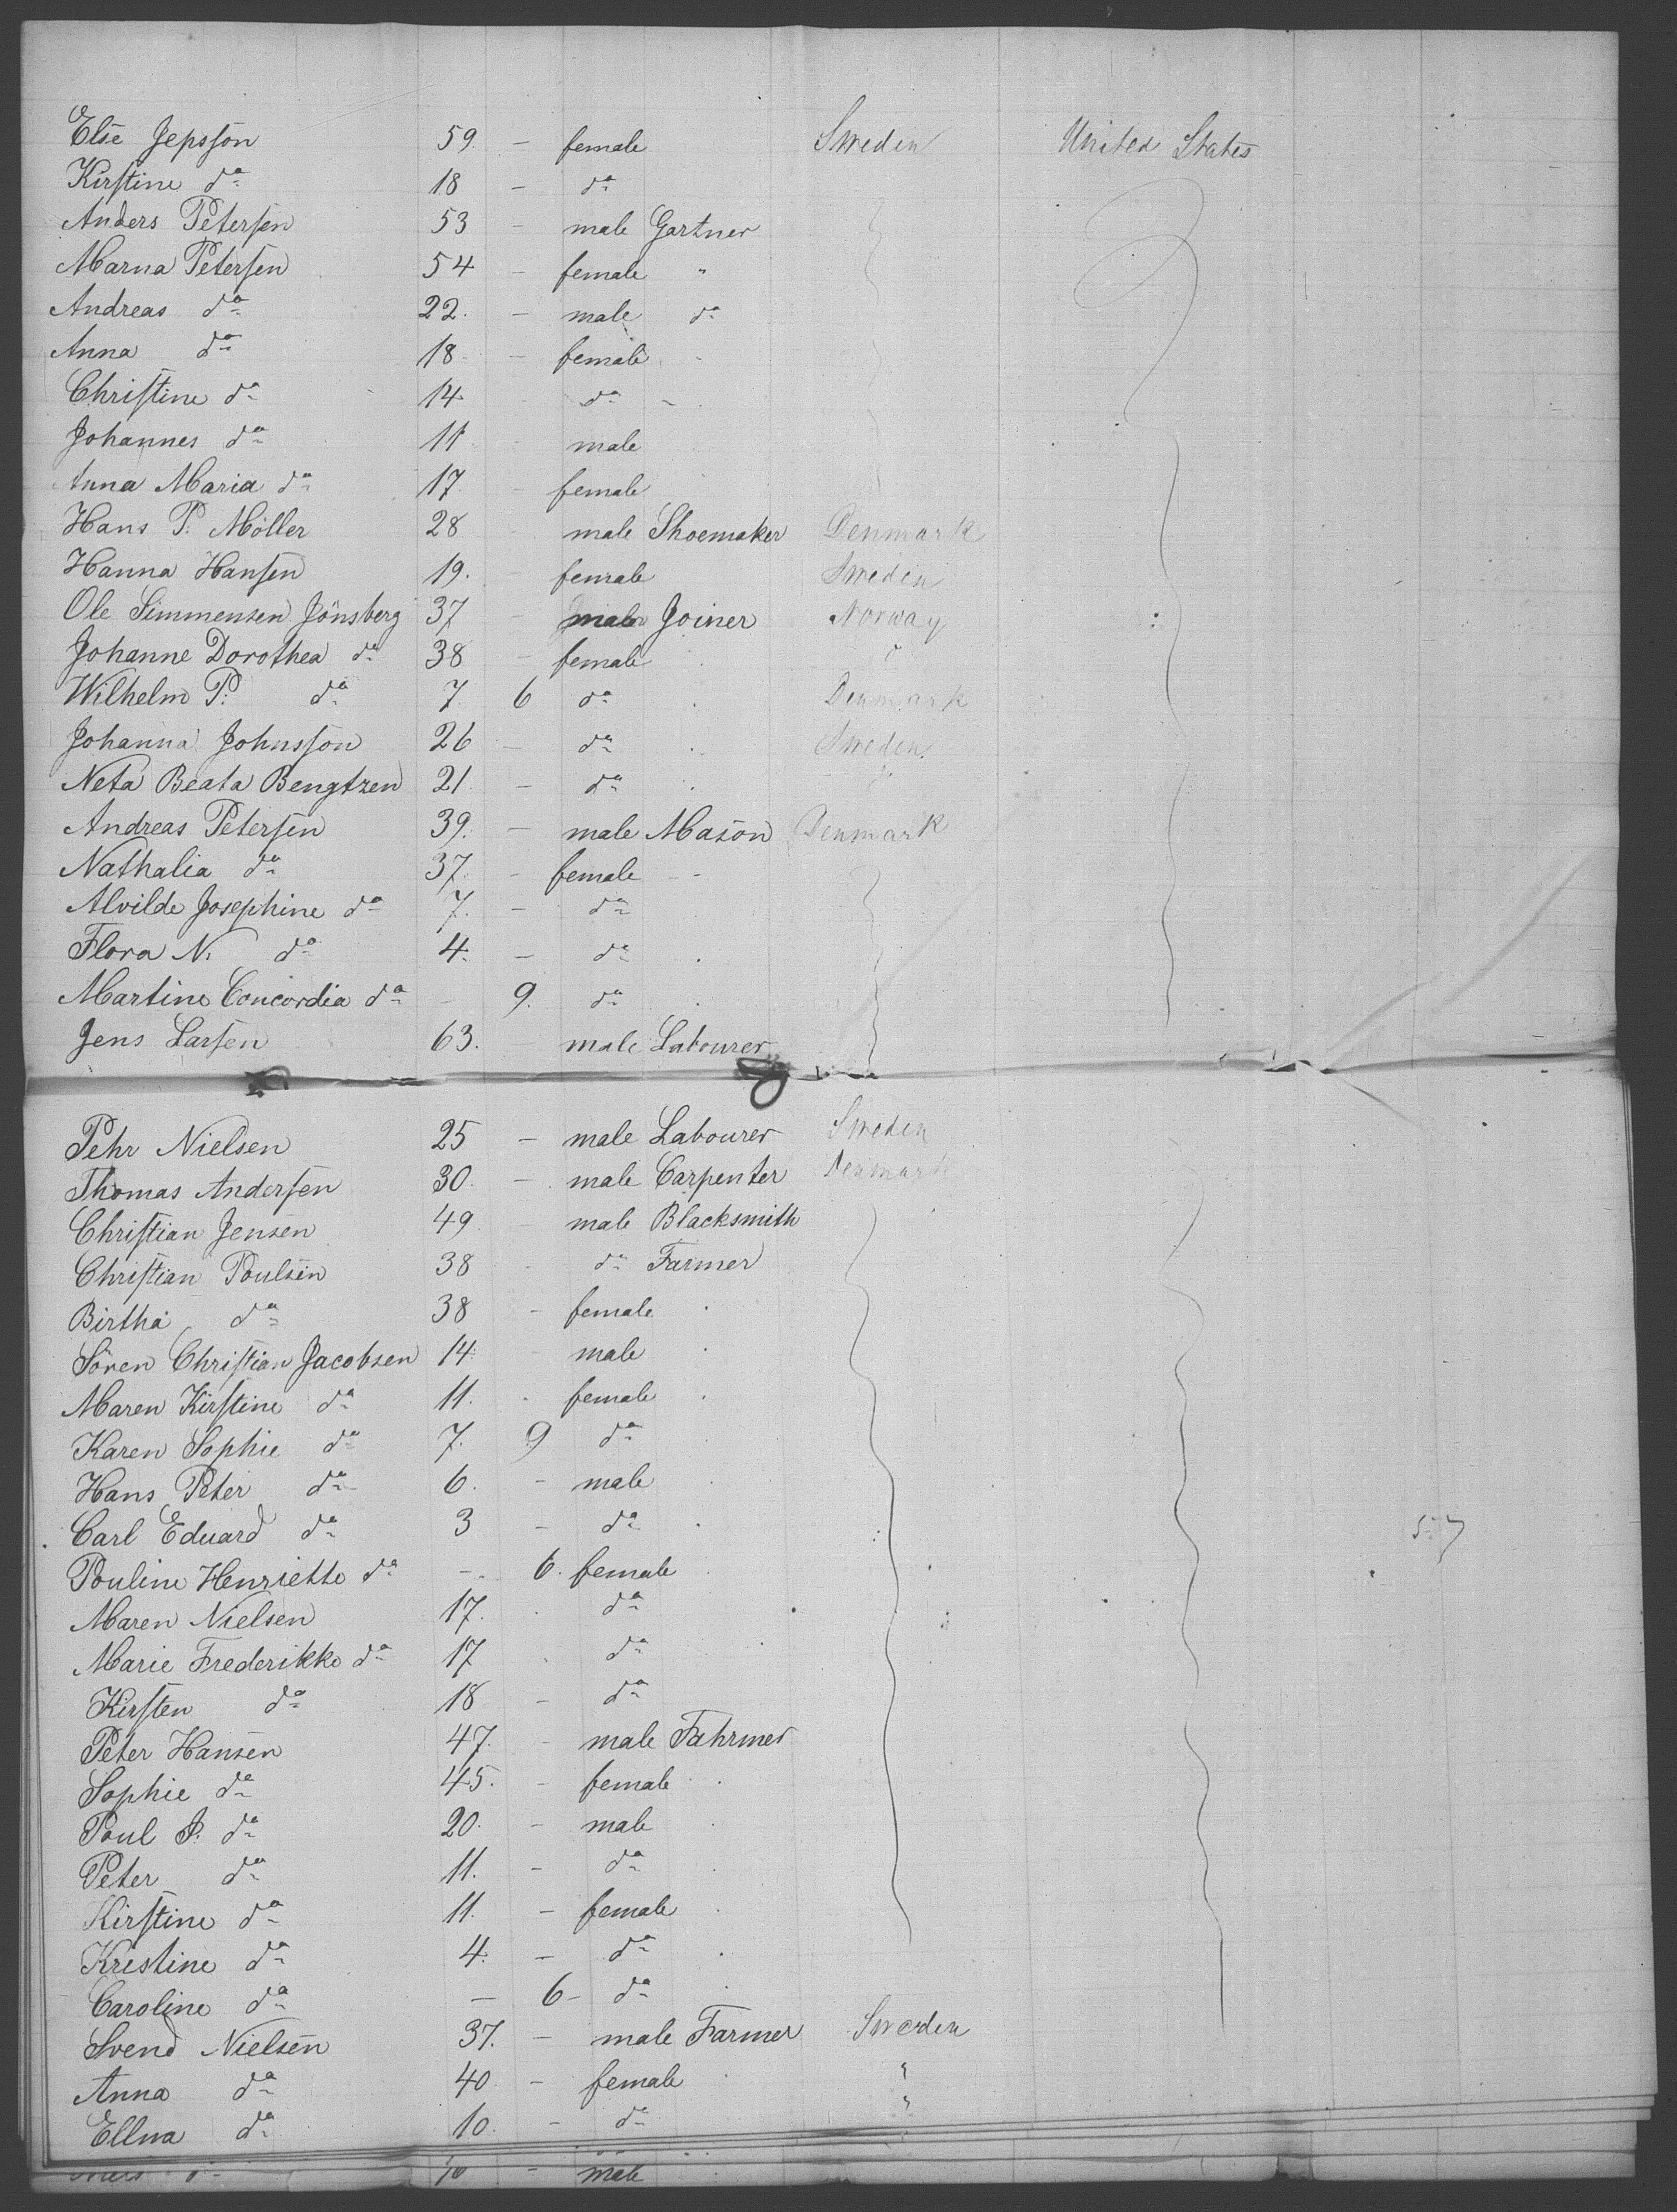 Else Jepsson 59 - female Sweden United States
Kirstine do 18 - do
Anders Petersen 53 - male Gartner
Marna Petersen 54 - female "
Andreas do 22. - male do
Anna do 18 - female
Christine do 14 do
Johannes do 11 male
Anna Maria do 17 female
Hans P. Möller 28 male Shoemaker Denmark
Hanna Hansen 19. female Sweden
Ole Simmensen Jönsberg 37 male Joiner Norway
Johanne Dorothea do 38 female "
Wilhelm P. do 7 6 do Denmark
Johanna Johnsson 26 - do Sweden
Neta Beata Bengtzen 21 - do "
Andreas Petersen 39. - male Mason Denmark
Nathalia do 37. - female
Alvilde Josephine do 7. - do
Flora N. do 4. - do
Martine Concordia do - 9. do
Jens Larsen 63. male Labourer
Pehr Nielsen 25 - male Labourer Sweden
Thomas Andersen 30. - male Carpenter Denmark
Christian Jensen 49 male Blacksmith
Christian Poulsen 38 do Farmer
Birtha do 38 - female
Sören Christian Jacobsen 14. male
Maren Kirstine do 11. female
Karen Sophie do 7. 9 do
Hans Peter do 6. - male
Carl Eduard do 3 - do
Pouline Henriette do - 6. female
Maren Nielsen 17. do
Marie Frederikke do 17 do
Kirsten do 18 - do
Peter Hansen 47. - male Fahrmer
Sophie do 45. - female
Poul P. do 20. - male
Peter do 11. - do
Kirstine do 11. - female
Kristine do 4. - do
Caroline do - 6 - do
Svend Nielsen 37. - male Farmer Sweden
Anna do 40 - female "
Ellna do 10. - do "
do - male